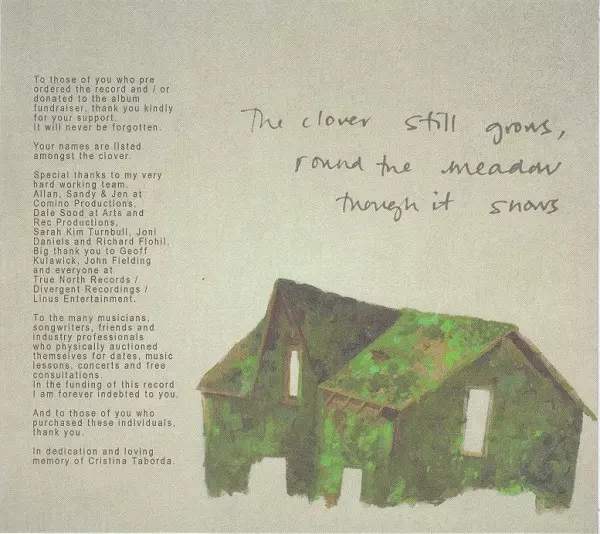 To those of you who pre
ordered the record and / or
donated to the album
fundraiser, thank you kindly
for your support.
It will never be forgotten.
Your names are listed
amongst the clover.
Special thanks to my very
hard working team,
Allan, Sandy & Jen at
Comino Productions,
Dale Sood at Arts and
Rec Productions,
Sarah Kim Turnbull, Joni
Daniels and Richard Flohil.
Big thank you to Geoff
Kulawick, John Fielding
and everyone at
True North Records /
Divergent Recordings /
Linus Entertainment.
To the many musicians,
songwriters, friends and
industry professionals
who physically auctioned
themselves for dates, music
lessons, concerts and free
consultations
In the funding of this record
I am forever indebted to you.
And to those of you who
purchased these individuals,
thank you.
In dedication and loving
memory of Cristina Taborda.
The clover still grows,
round the meadow
though it snows